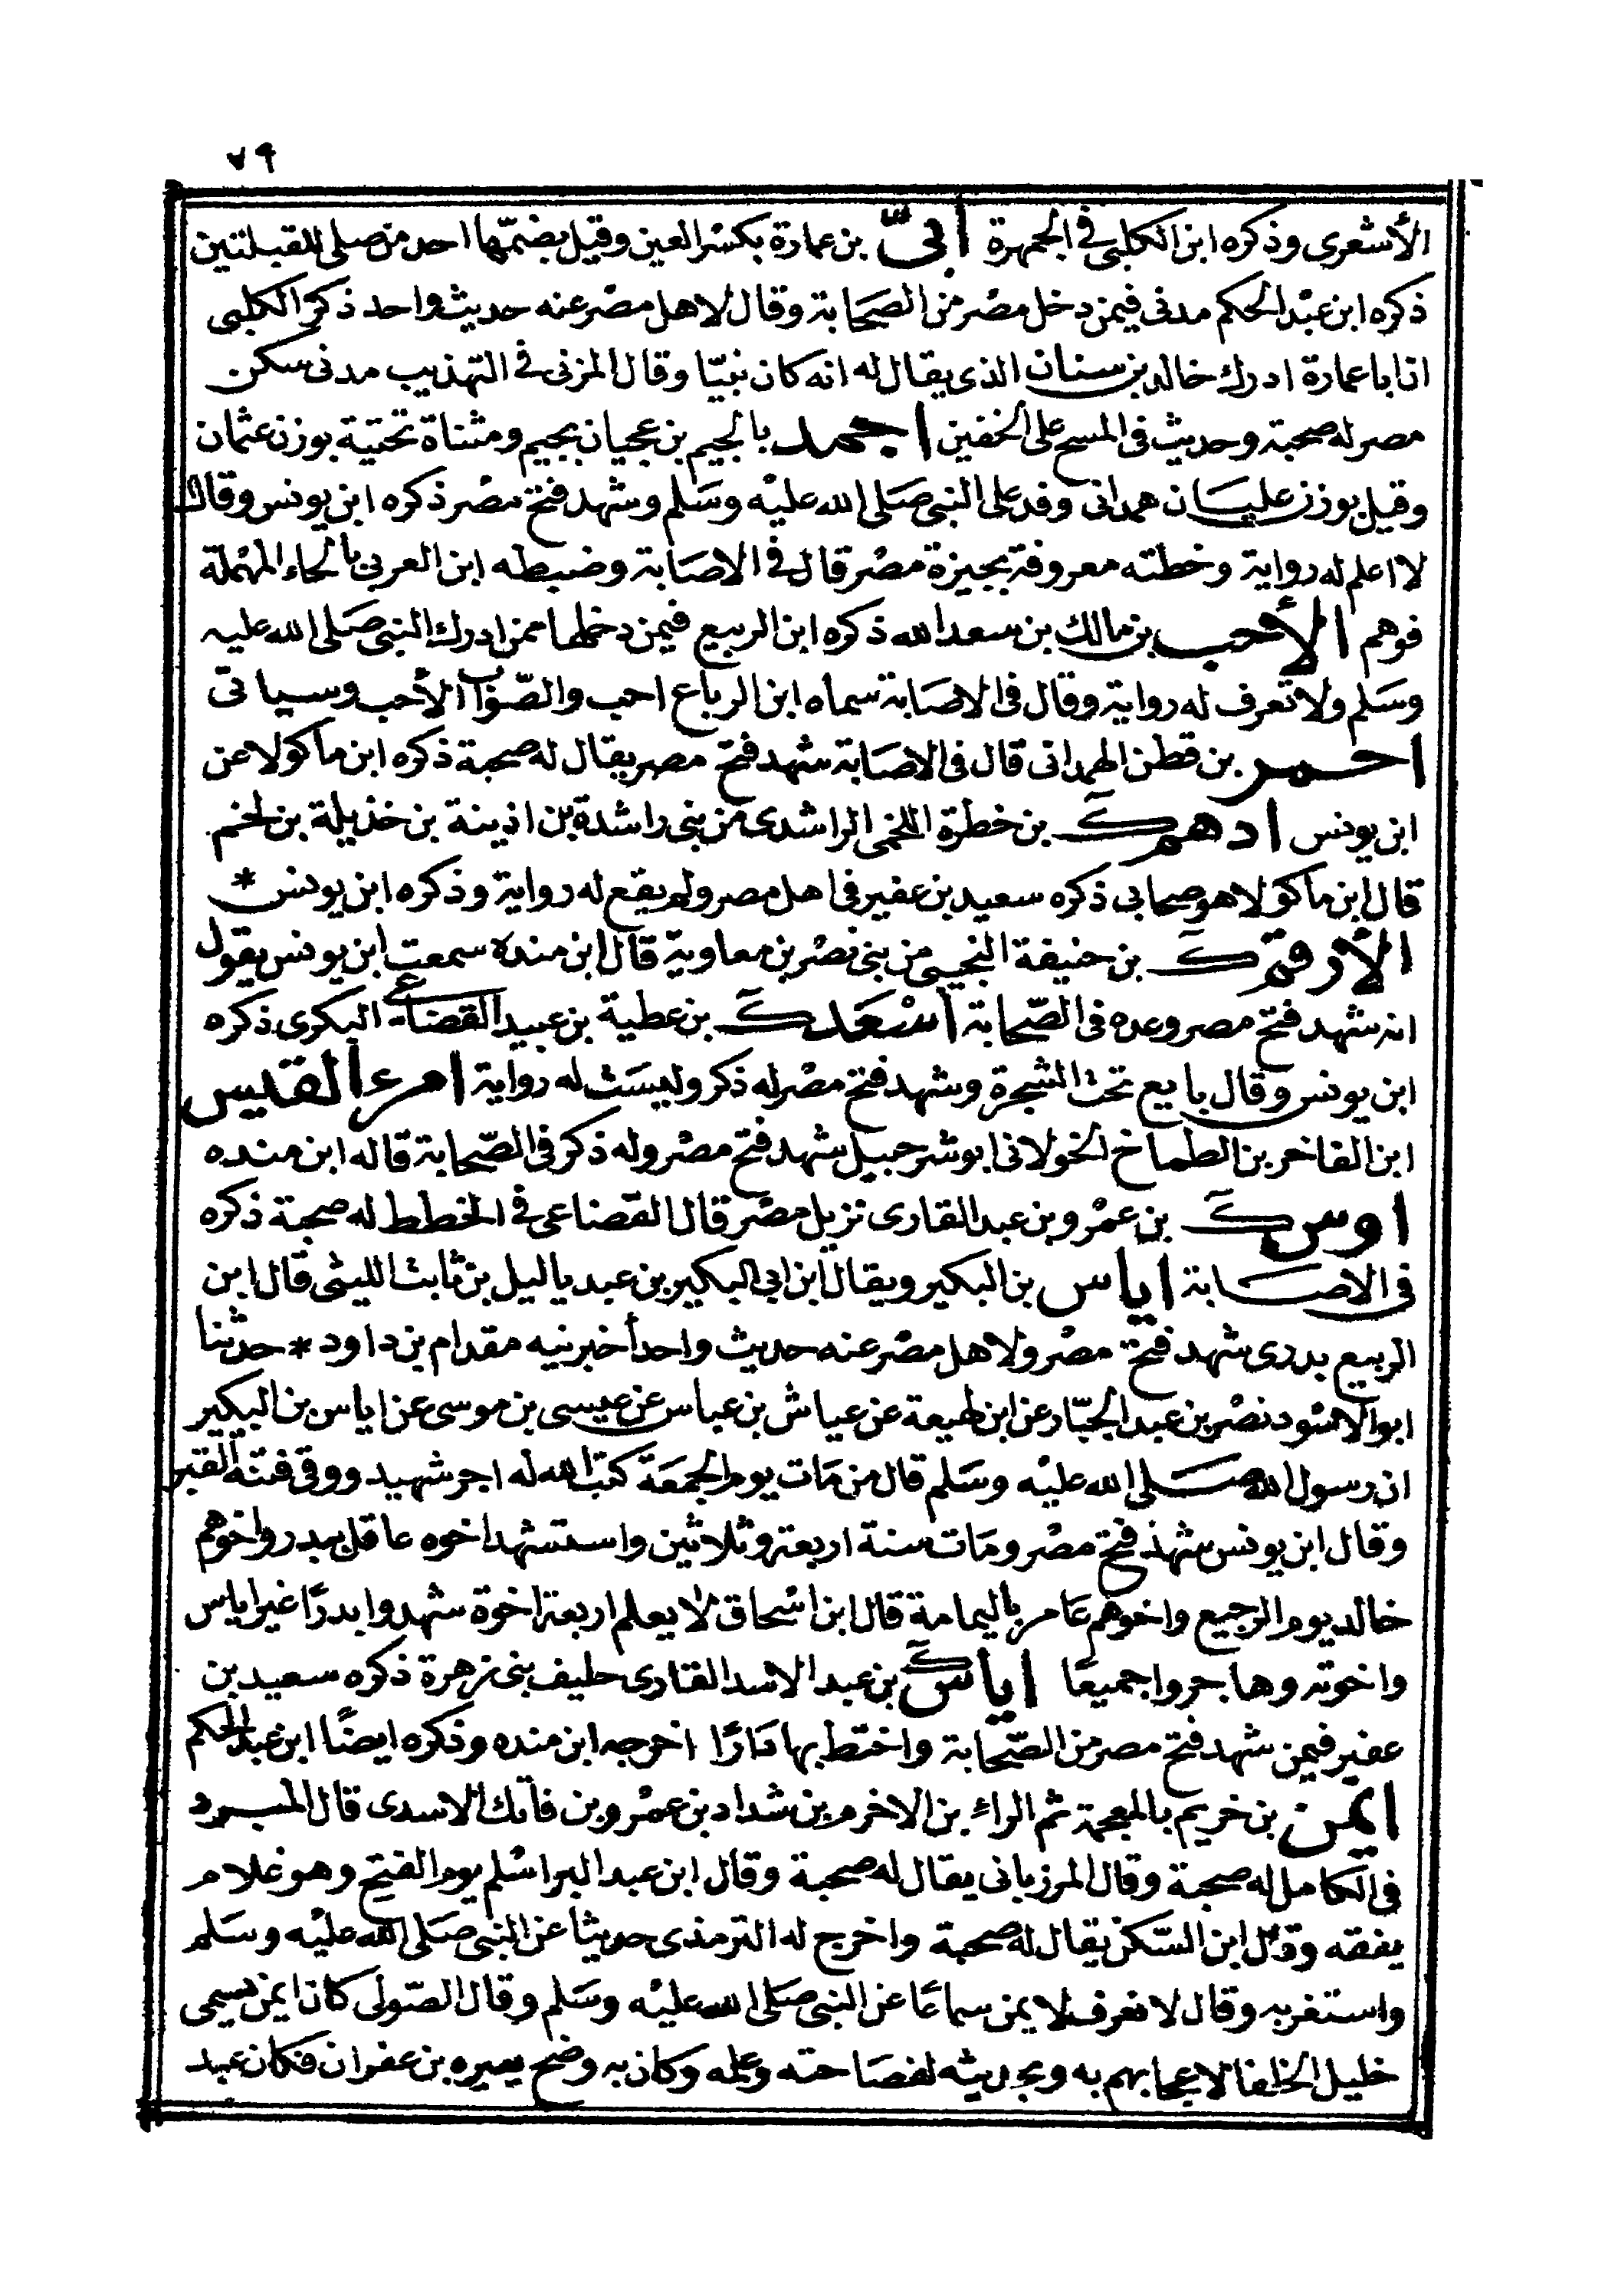 ٧٩
الأشعرى وذكره ابن الكلبى فى الجمهرة أبىّ بن عمارة بكسر العين وقيل بضمّها احد من صلى للقبلتين
ذكره ابن عبد الحكم مدنى فيمن دخل مصر من الصحابة وقال لاهل مصر عنه حديث واحد ذكر الكلبى
ان ابا عمارة ادرك خالد بن سنان الذى يقال له انه كان نبيّا وقال المزنى فى التهذيب مدنى سكن
مصر له صحبة وحديث فى المسح على الخفين احمد بالجيم بن عجيان بجيم ومثناة تحتية بوزن عثمان
وقيل بوزن عليسان همدانى وفد على النبى صَلى الله عليْه وسَلم وشهد فتح مصر ذكره ابن يونس وقال
لا اعلم له رواية وخطته معروفة بجيزة مصر قال فى الاصَابة وضبطه ابن العربى بالحاء المهملة
فوهم الأحب بن مالك بن سعد الله ذكره ابن الربيع فيمن دخلها ممن ادرك النبى صَلى الله عليه
وسَلم ولا تعرف له رواية وقال فى الاصَابة سماه ابن الرباع احب والصّواب الأحب وسياتى
احمر بن قطن الهمدانى قال فى الاصَابة شهد فتح مصر يقال له صحبة ذكره ابن ماكولا عن
ابن يونس ادهم بن خطرة اللخمى الراشدى من بنى راشدة بن اذينة بن خذيلة بن لخم
قال ابن ماكولا هو صحابى ذكره سعيد بن عفير فى اهل مصر ولم يقع له رواية وذكره ابن يونس *
الأرقم بن حنيفة التجيبى من بنى نصر بن معاوية قال ابن منده سمعت ابن يونس يقول
انه شهد فتح مصر وعده فى الصّحابة أسْعَد بن عطية بن عبيد القضاعى البكرى ذكره
ابن يونس وقال بايع تحت الشجرة وشهد فتح مصر له ذكر وليسَت له رواية امرء القيس
ابن الفاخر بن الطماخ الخولانى ابو شرحبيل شهد فتح مصْر وله ذكر فى الصّحابة قاله ابن منده
اوس بن عمْرو بن عبد القارى نزيل مصْر قال القضاعى فى الخطط له صحبة ذكره
فى الاصَابة اياس بن البكير ويقال ابن ابى البكير بن عبد ياليل بن ثابت الليثى قال ابن
الربيع بدرى شهد فتح مصْر ولاهل مصْر عنه حديث واحد أخبرنيه مقدام بن داود * حدثنا
ابو الاسْود نصْر بن عبد الجبّار عن ابن لهيعة عن عياش بن عباس عن عيسى بن موسى عن اياس بن البكير
ان رسول الله صَلى الله عليْه وسَلم قال من مَات يوم الجمعَة كتب الله له اجر شهيد ووقى فتنة القبر
وقال ابن يونس شهد فتح مصْر ومَات سنة اربعة وثلاثين واستشهد اخوه عاقل ببدر واخوهم
خالد يوم الرجيع واخوهم عَامر باليمامة قال ابن اسْحاق لا يعلم اربعة اخوة شهدوا بدرًا غير اياس
واخوته وهاجروا جميعًا اياس بن عبد الاسد القارى حليف بنى زهرة ذكره سعيد بن
عفير فيمن شهد فتح مصر من الصّحابة واختط بها دَارًا اخرجه ابن منده وذكره ايضًا ابن عبد الحكم
ايمن بن خريم بالمعجمة ثم الراء بن الاخرم بن شداد بن عمْرو بن فاتك الاسدى قال المبرد
فى الكامل له صحبة وقال المرزبانى يقال له صحبة وقال ابن عبد البر اسْلم يوم الفتح وهو غلام
يفقه وقال ابن السّكن يقال له صحبة واخرج له الترمذى حديثا عن النبى صَلى الله عليْه وسَلم
واستغربه وقال لا نعرف لايمن سماعَا عن النبى صَلى الله عليْه وسَلم وقال الصّولى كان ايمن يسمى
خليل الخلفا لاعجابهم به وبحديثه لفصَاحته وعلمه وكان به وضح يغيره بن عفران فكان عبد